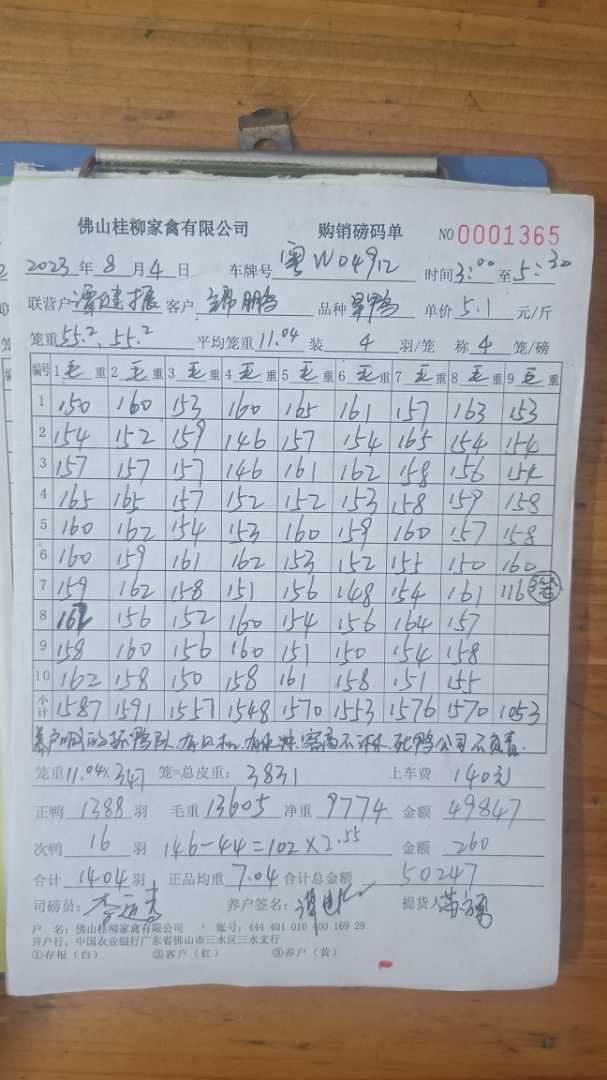 佛山桂柳家禽有限公司 购销磅码单 NO 0001365
2023年8月4日 车牌号 粤W04912 时间3:00至5:30
联营户 谭建振 客户 锦鹏 品种 旱鸭 单价 5.1 元/斤
笼重55.2、55.2 平均笼重11.04 装 4 羽/笼 称 4 笼/磅
编号 1毛重 2毛重 3毛重 4毛重 5毛重 6毛重 7毛重 8毛重 9毛重
1 150 160 153 160 165 161 157 163 153
2 154 152 159 146 157 154 165 154 154
3 157 157 157 146 161 162 158 156 154
4 165 165 157 152 152 153 158 159 158
5 160 162 154 153 160 159 160 157 158
6 160 159 161 162 153 152 155 150 160
7 159 162 158 151 156 148 154 161 116
8 162 156 152 160 154 156 164 157
9 158 160 156 160 151 150 154 158
10 162 158 150 158 161 158 151 155
小计 1587 1591 1557 1548 1570 1553 1576 1570 1053
死鸭公司不负责.
笼重11.04×347 笼=总皮重：3831 上车费 140元
正鸭 1388 羽 毛重 13605 净重 9774 金额 49847
次鸭 16 羽 146-44=102×2.55 金额 260
合计 1404 羽 正品均重 7.04 合计总金额 50247
司磅员： 养户签名： 提货人
户 名：佛山桂柳家禽有限公司 账号：444 401 010 400 169 29
开户行：中国农业银行广东省佛山市三水区三水支行
①存报（白） ②客户（红） ③养户（黄）